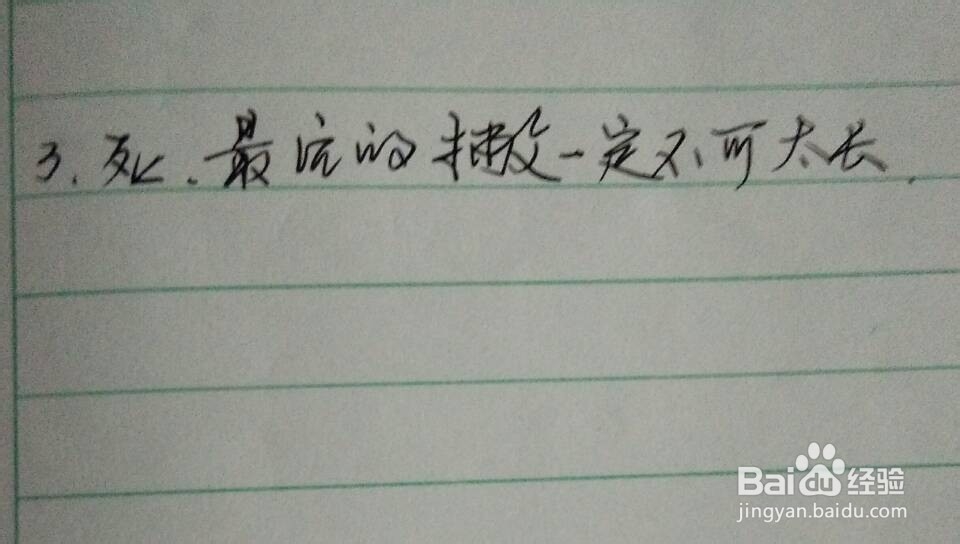 3.死.最后的撇一定不可太长.
Baidu经验
jingyan.baidu.com